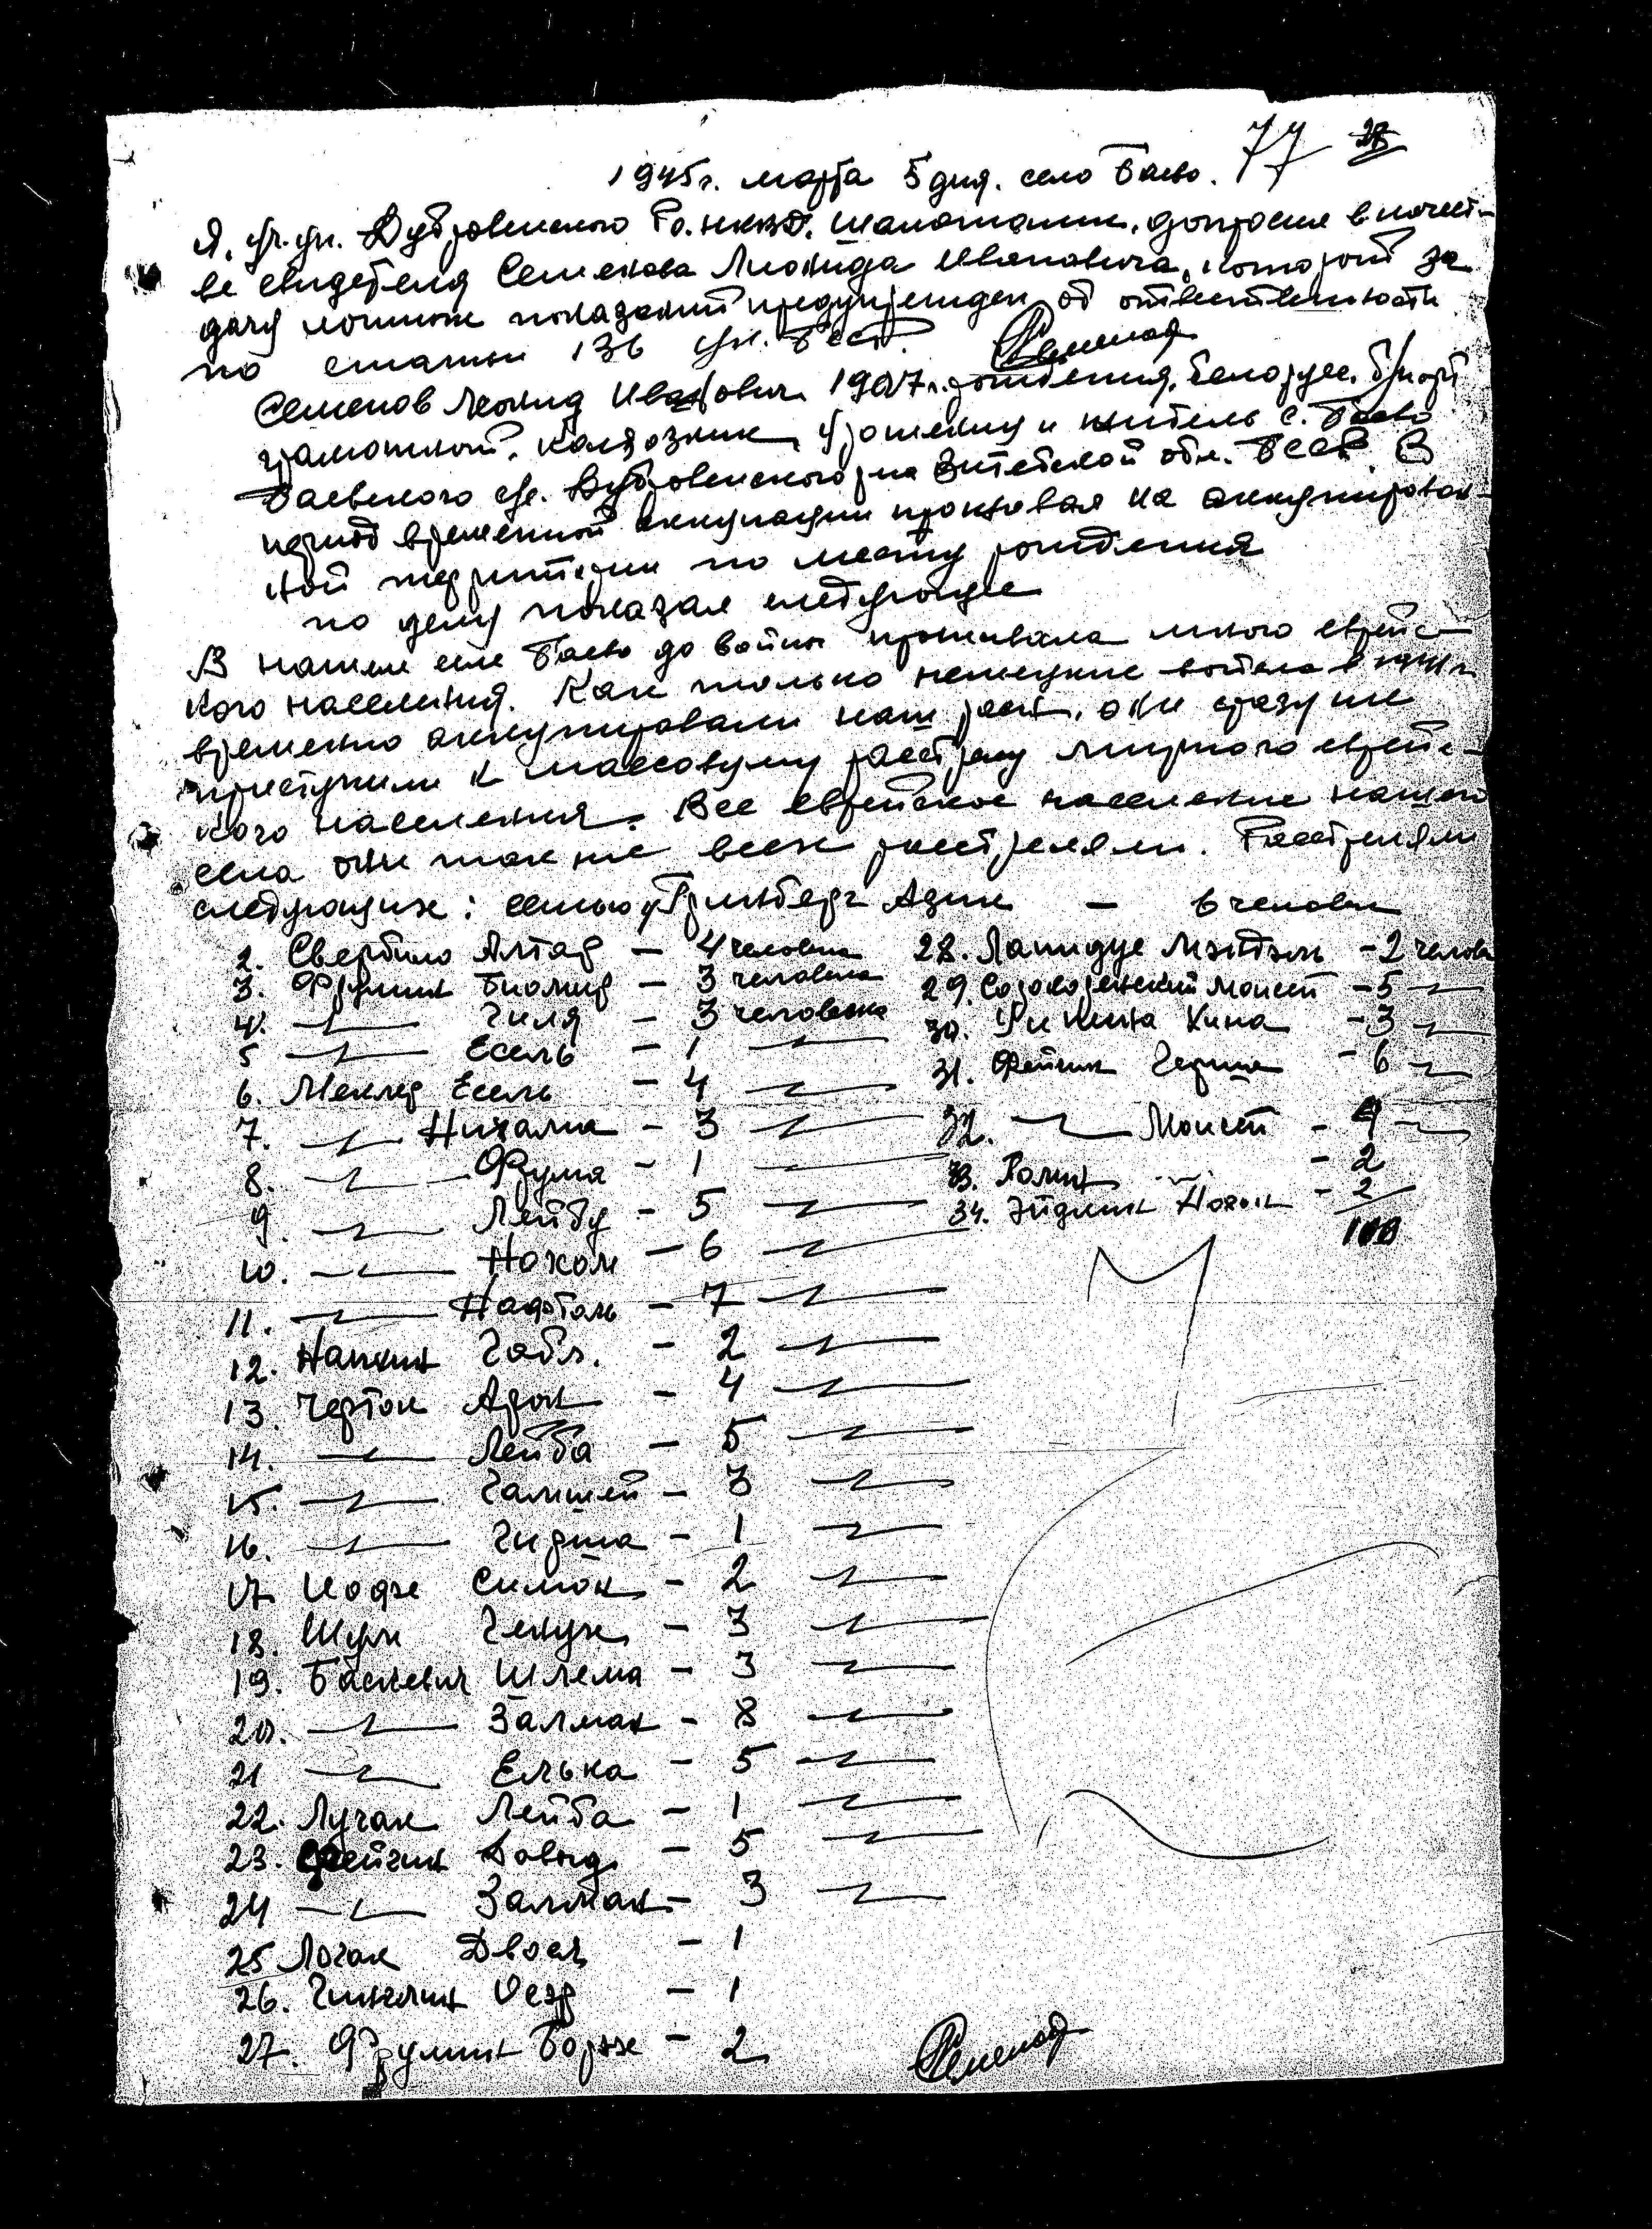 77 28
1945г. марта 5 дня. село Баево.
Я, уч.уп. Дубровенского Ро.НКВД. допросил в качест-
ве свидетеля Семенова Леонида Ивановича, который за
дачу ложных показаний предупрежден об ответственности
по статьи 136 УК. БССР. Семенов
Семенов Леонид Иванович 1907г. рождения, белорус. б/парт
грамотный, колхозник, уроженец и житель с. Баево
Баевского с/с. Дубровенского р-на Витебской обл. БССР. В
период временной оккупации проживал на оккупирован-
ной территории по месту рождения
по делу показал следующее
В нашем селе Баево до войны проживало много еврейс-
кого населения. Как только немецкие войска в 1941г.
временно оккупировали наш район, они сразу же
приступили к массовому расстрелу мирного еврейс-
кого населения. Все еврейское население нашего
села они также всех расстреляли. Расстреляли
следующих: семью Гринберг Адик — 6 человек
2. Свердло Алтар — 4 человека
3. Фрумин Биомир — 3 человека
4. —〃— Гиля — 3 человека
5 —〃— Есель — 1 —〃—
6. Меклер Есель — 4 —〃—
7. —〃— Нихама — 3 —〃—
8. —〃— Фрума — 1 —
9. —〃— Лейбу — 5 —〃—
10. —〃— Нохом — 6 —〃—
11. —〃— Нафталь — 7 —〃—
12. Напкин Габр. — 2 —〃—
13. Черток Арон — 4 —〃—
14. —〃— Лейба — 5 —〃—
15. —〃— Галишей — 3 —〃—
16. —〃— Гирша — 1 —〃—
17. Иофе Симон — 2 —〃—
18. Шур — 3 —〃—
19. Баскевич Шлема — 3 —〃—
20. —〃— Залман — 8 —〃—
21 —〃— Елька — 5 —〃—
22. Лугак Лейба — 1 —〃—
23. Фейгин Довыд — 5 —〃—
24 —〃— Залман — 3 —〃—
25 Логак Двося — 1
26. — 1
27. Фрумин Борух — 2
28. Лапидус Мэндэль — 2 челов
29. Монсей — 5 —〃—
30. Хина — 3 —〃—
31. Фейгин Герша — 6 —〃—
32. —〃— Моисей — 4 —〃—
33. Ролин — 2
34. Эйдлин Нохом — 2
108
Семенов